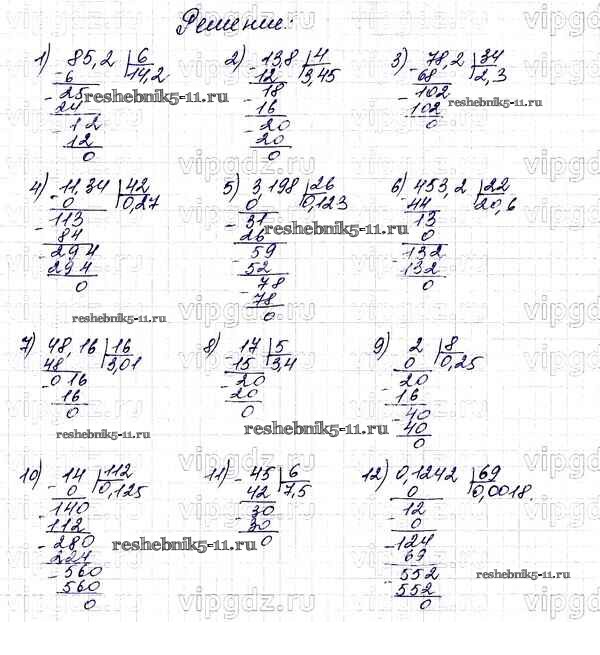 Решение:
1) 85,2 | 6 2) 13,8 | 4 3) 78,2 | 34
- 6 14,2 - 12 3,45 - 68 2,3
- 25 - 18 - 102
24 16 102
- 12 - 20 0
12 20
0 0
reshebnik5-11.ru
4) 11,34 | 42 5) 3,198 | 26 6) 453,2 | 22
- 0 0,27 - 0 0,123 - 44 20,6
- 113 - 31 - 13
84 26 0
- 294 - 59 - 132
294 52 132
0 - 78 0
78
0
reshebnik5-11.ru
reshebnik5-11.ru
7) 48,16 | 16 8) 17 | 5 9) 2 | 8
48 3,01 - 15 3,4 - 0 0,25
- 016 - 20 - 20
16 20 16
0 0 - 40
40
0
reshebnik5-11.ru
reshebnik5-11.ru
10) 14 | 112 11) 45 | 6 12) 0,1242 | 69
- 0 0,125 - 42 7,5 0 0,0018.
- 140 - 30 - 12
112 30 0
- 280 0 - 124
224 69
- 560 - 552
560 552
0 0
reshebnik5-11.ru
reshebnik5-11.ru
vipgdz.ru